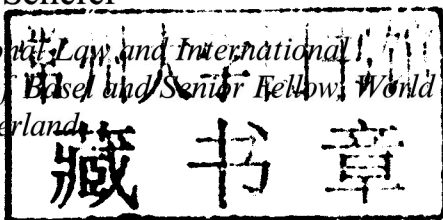 Scherer
onal Law and International
f Basel and Senior Fellow, World
erland
藏书章